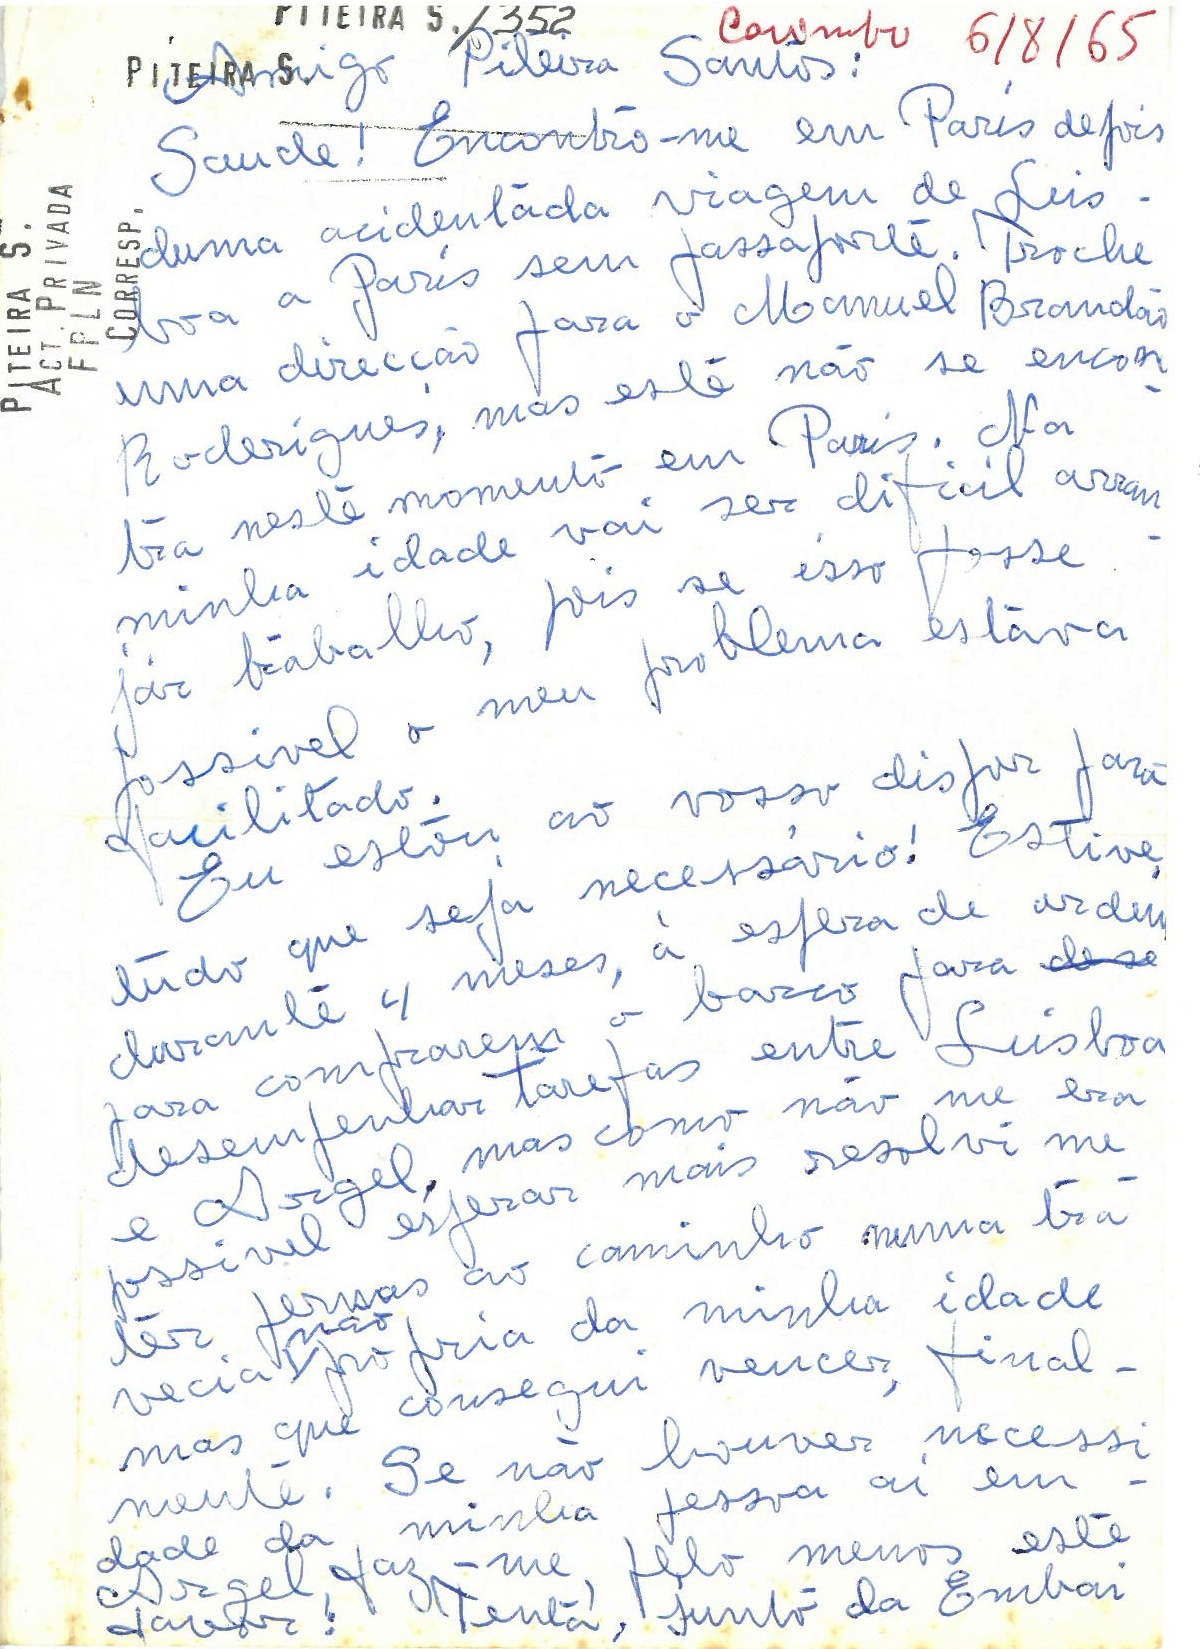 PITEIRA S./352
Carimbo 6/8/65
PITEIRA S.
PITEIRA S.
ACT. PRIVADA
FPLN
CORRESP.
Amigo Piteira Santos:
Saude! Encontro-me em Paris depois
duma acidentada viagem de Luis-
boa a Paris sem passaporte. Troche
uma direcção para o Manuel Brandão
Roderigues, mas este não se encon-
tra neste momento em Paris. Na
minha idade vai ser dificil arran-
jar trabalho, pois se isso fosse
possivel o meu problema estava
facilitado.
Eu estou ao vosso dispor para
tudo que seja necessário! Estive,
durante 4 meses, à espera de ordem
para comprarem o barco para de se
desempenhar tarefas entre Luisboa
e Argel, mas como não me era
possivel esperar mais resolvi me
ter pernas ao caminho numa tra-
vecia não propria da minha idade
mas que consegui vencer, final-
mente. Se não houver necessi-
dade da minha pessoa ai em
Argel, faz-me, pelo menos este
favor! Tenta, junto da Embai